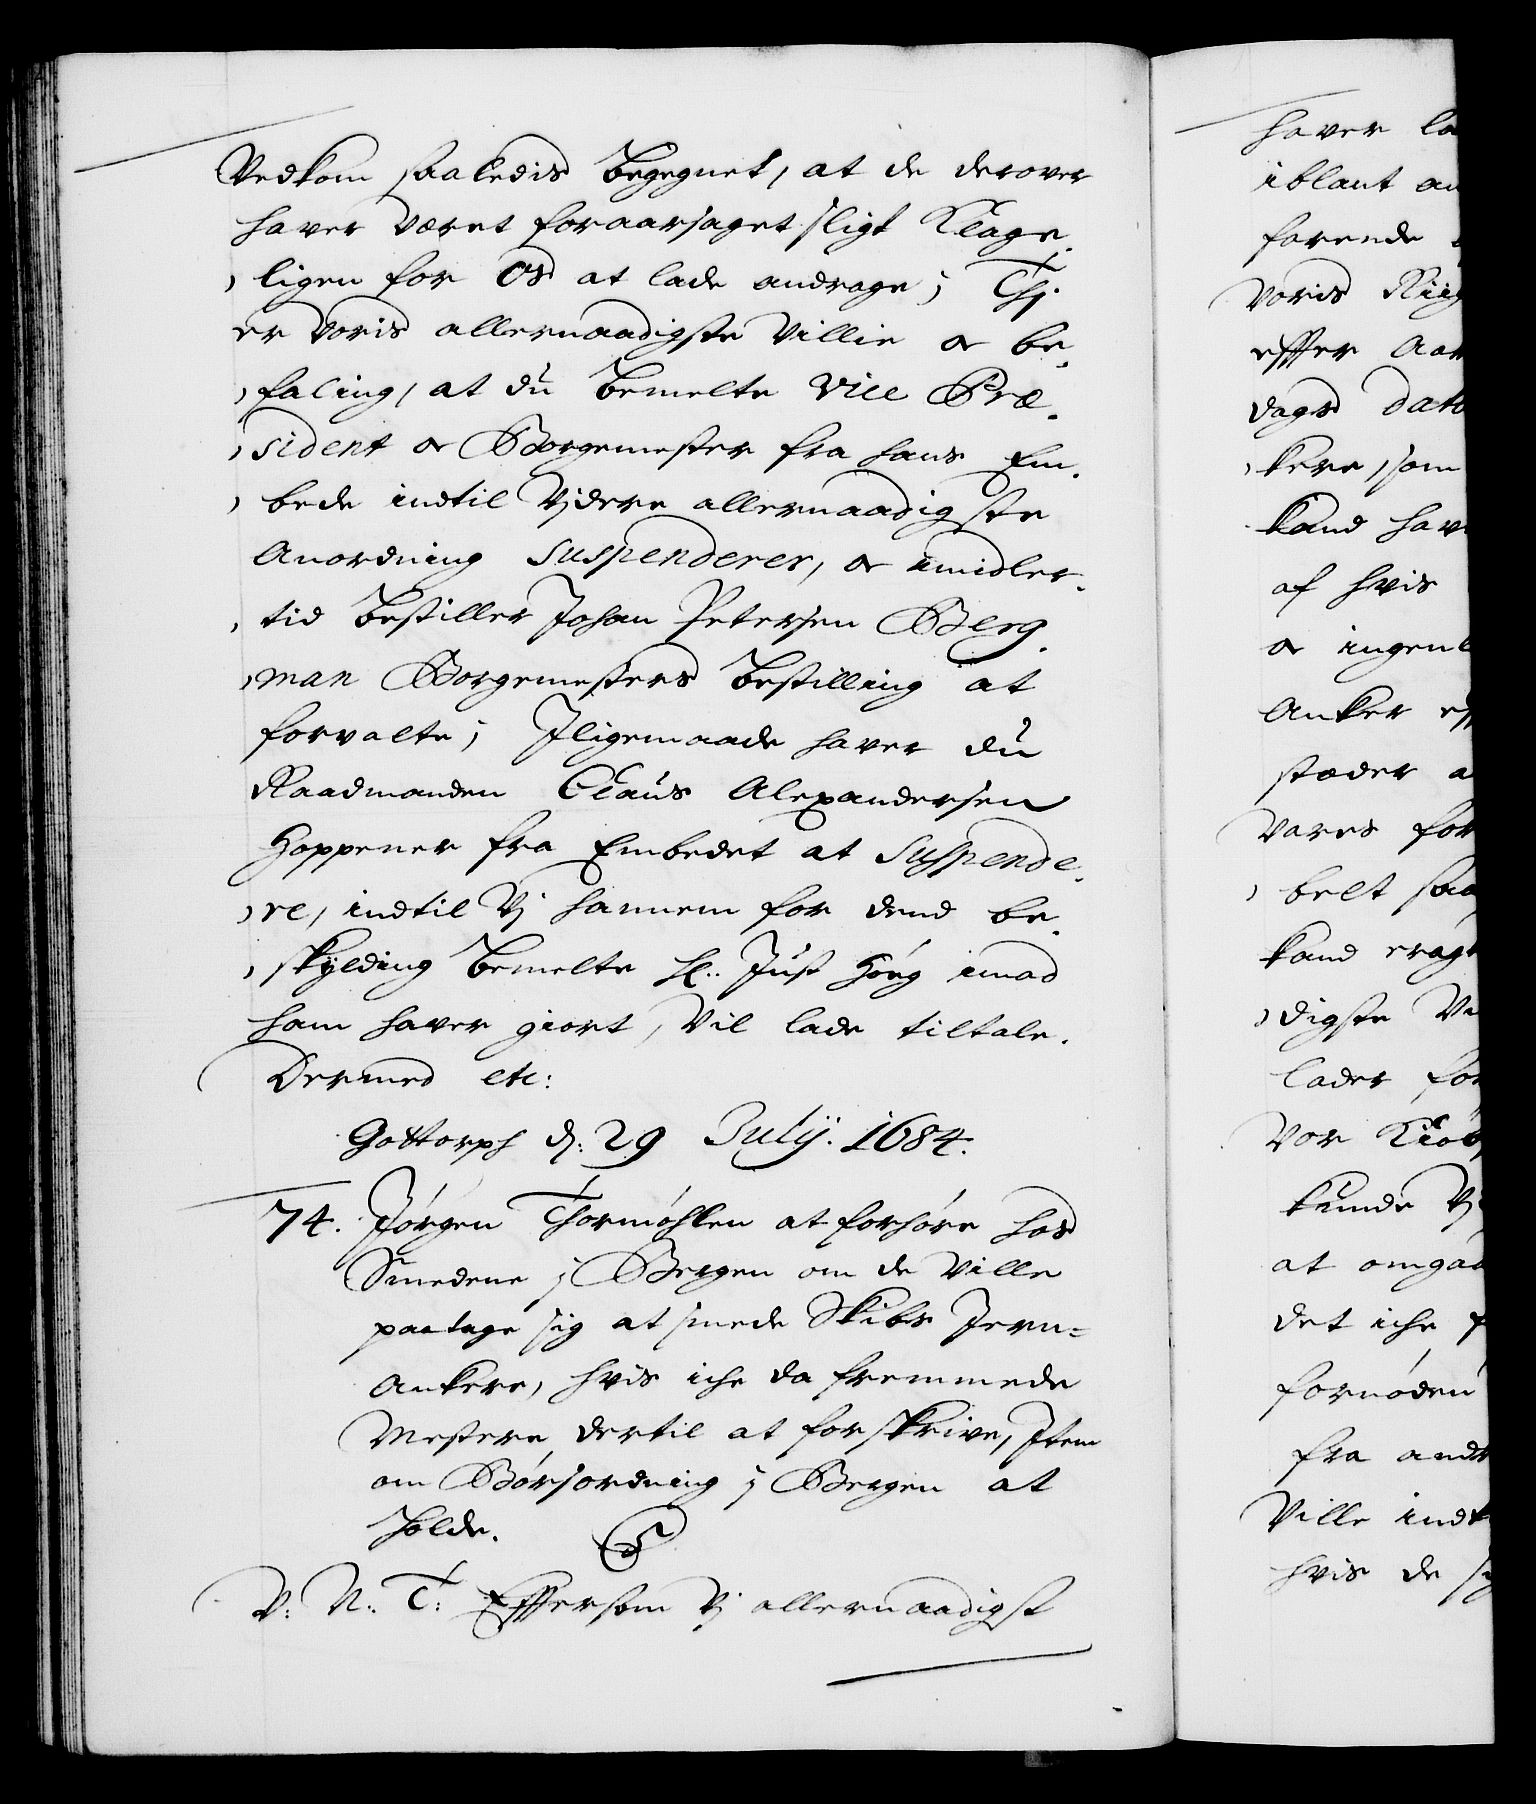 Vedkom saaledis begegnet, at de derover
haver været foraarsaget sligt Klage-
ligen for Os at lade andrage; Thj
er Voris allernaadigste Villie oc be-
faling, at du bemelte Vice Præ-
sident oc Borgemester fra hans Em-
bede indtil Vjdere allernaadigste
Anordning suspenderer, oc imidler-
tid bestiller Johan Petersen Berg-
man Borgemesters bestilling at
forvalte; Jligemaade haver du
Raadmanden Claus Alexandersen
Hoppener fra Embedet at suspende-
re, indtil Vj hannem for dend be-
skylding bemelte Hr. Just Höeg imod
ham haver giort, Vil lade tiltale.
Dermed etc:
Gottorph d: 29 Julij. 1684.
74. Jörgen Thormöhlen at forhöre hos
Smedene j Bergen om de Ville
paatage sig at smede Skibs Jern-
Ankere, hvis iche da fremmede
Mestere dertil at forskrive, Jtem
om Börsordning j Bergen at
holde.
V: N: T: Eftersom Vj allernaadigst
haver la
iblant an
farende
Voris Riig
efter Aar
dags dato
kere, som
kand hav
af hvis
oc ingenl
Anker ef
stæder a
Vares for
belt saa
kand eragt
digste Vi
lader for
Vor Kiöb
kunde Vj
at omgaa
det iche f
fornöden
fra andr
Ville indt
hvis de sig